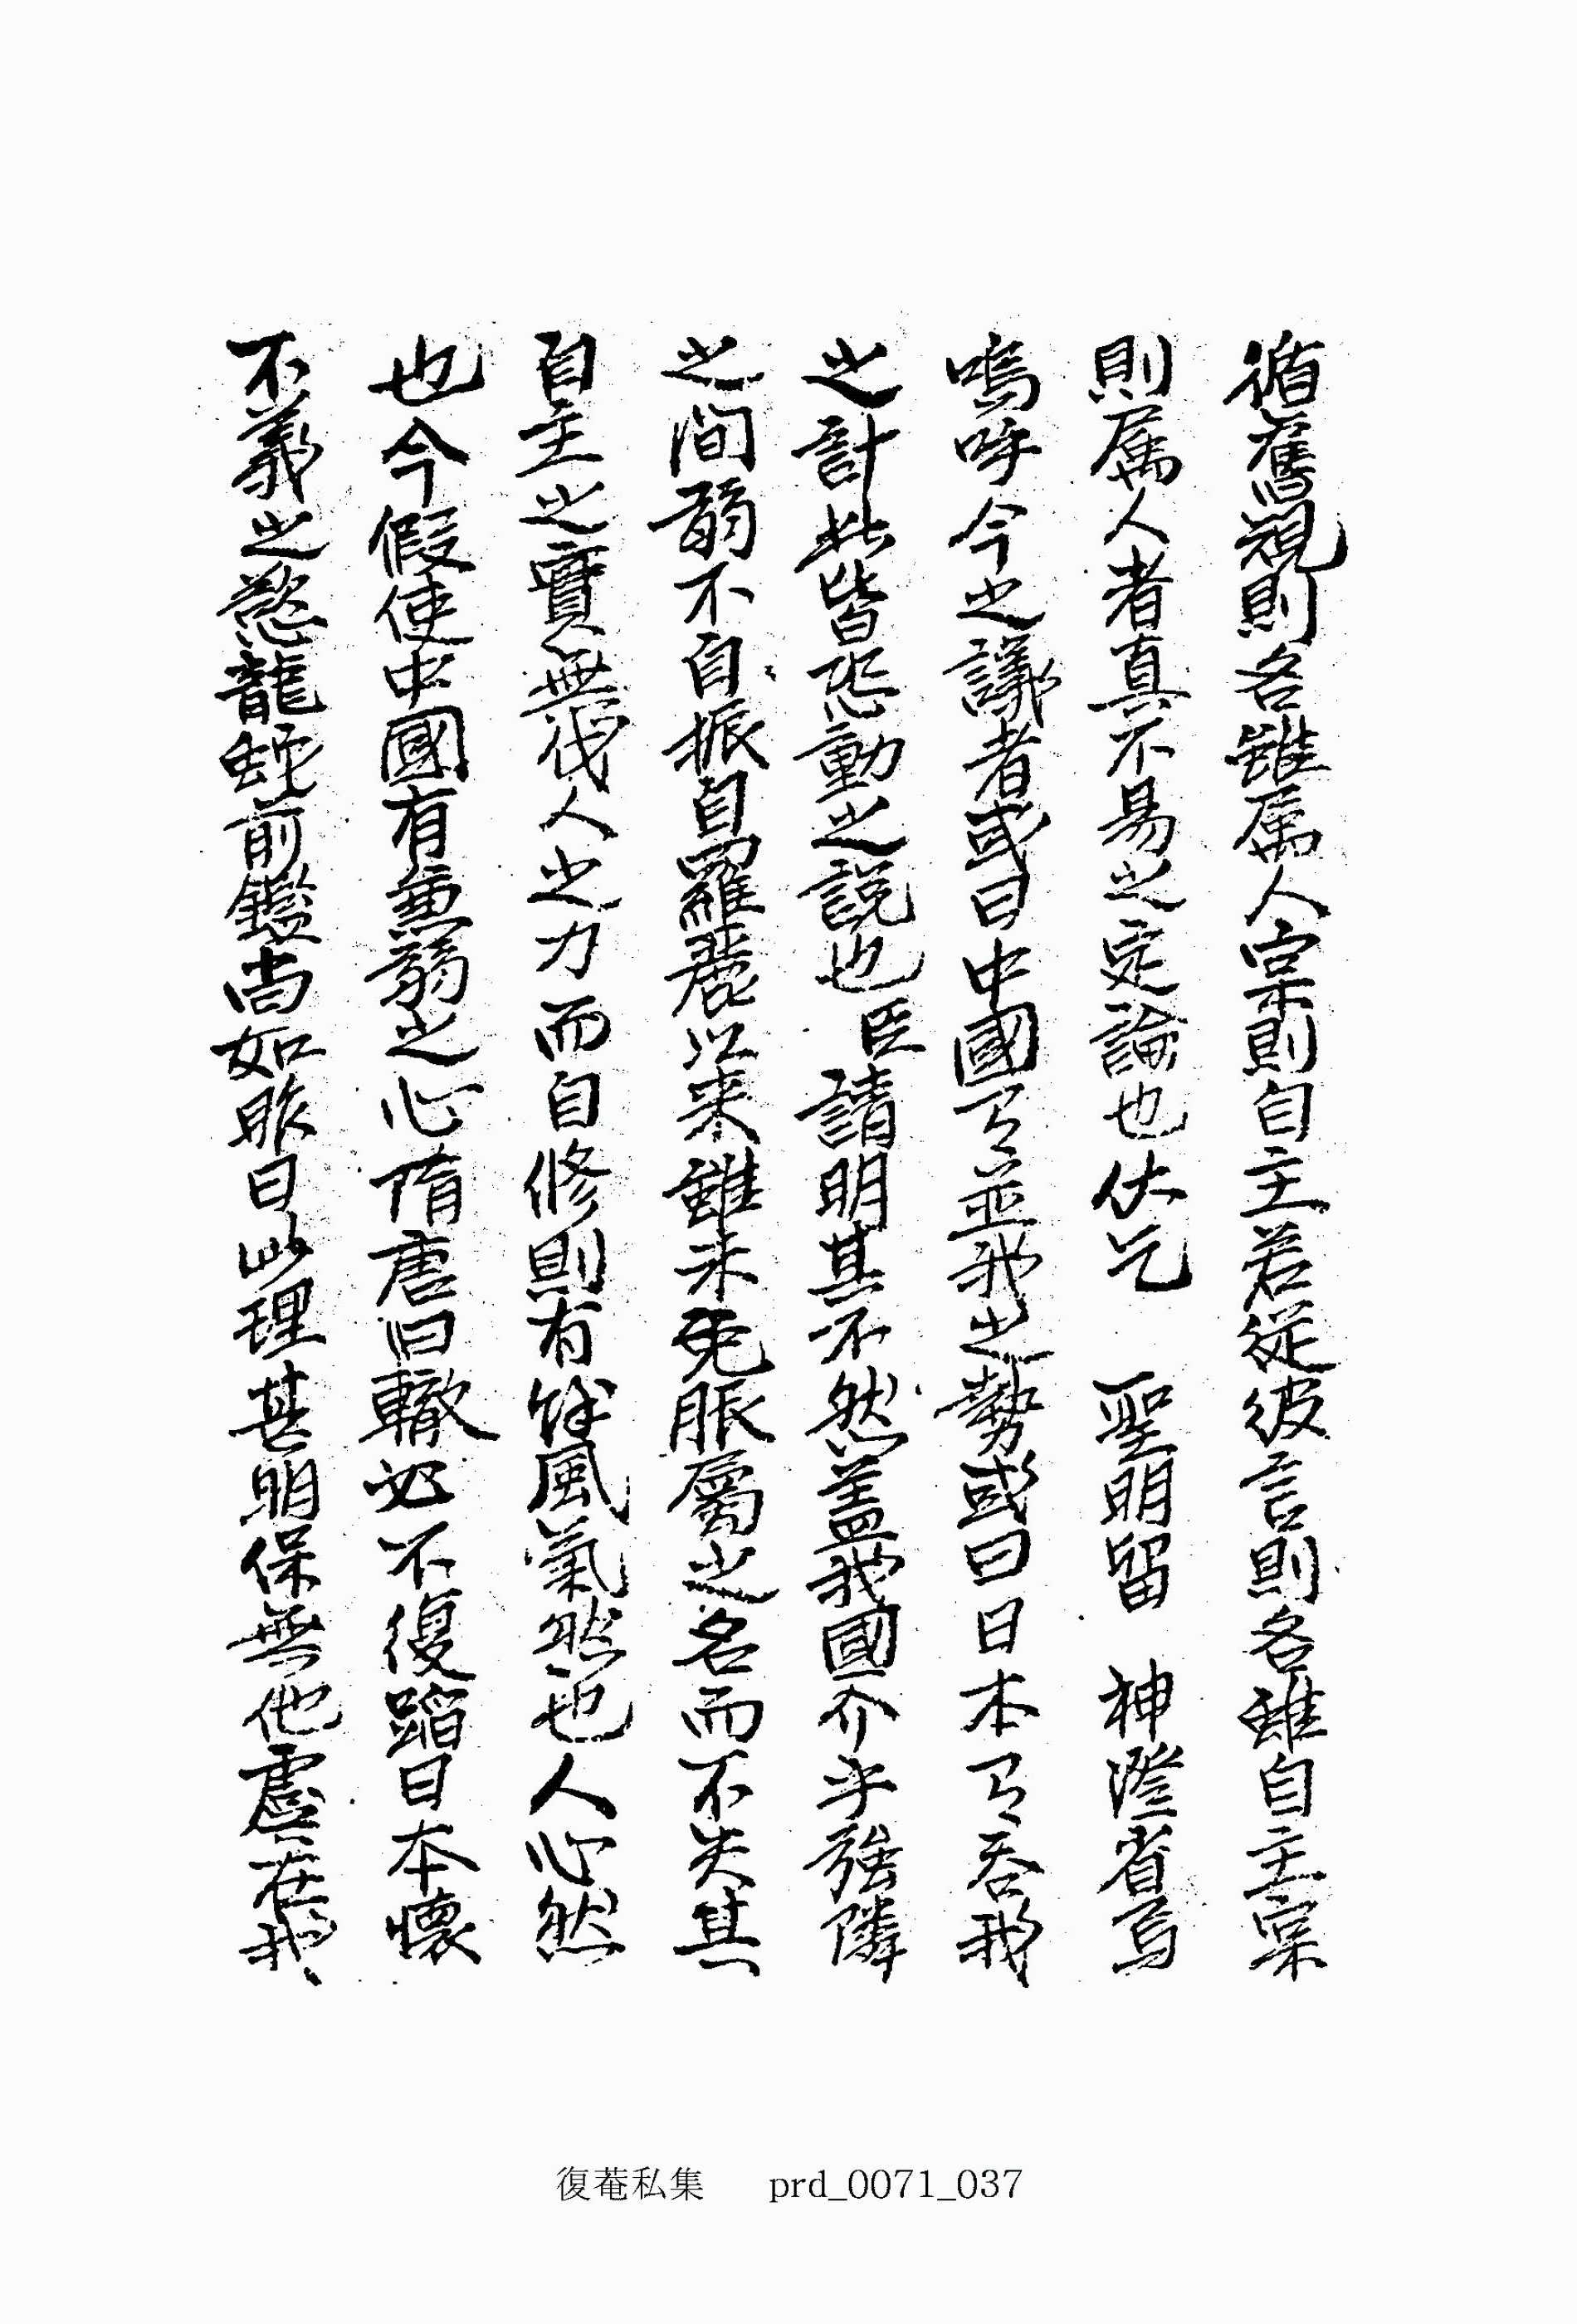 循舊規則名雖属人宲則自主若從彼言則名雖自主宲
則属人者真不易之定論也伏乞　聖明留　神澄省焉
嗚呼今之議者或曰中國有並我之勢或曰日本有呑我
之計此皆恐動之說也臣請明其不然盖我國介乎強隣
之間弱不自振自羅麗以来雖未免脹屬之名而不失其
自主之實無伐人之力而自修則有餘風氣然也人心然
也今假使中國有兼弱之心隋唐曰轍必不復蹈日本懷
不義之慾龍蛇前鑑尚如昨日此理甚明保無他虞在我
復菴私集 prd_0071_037